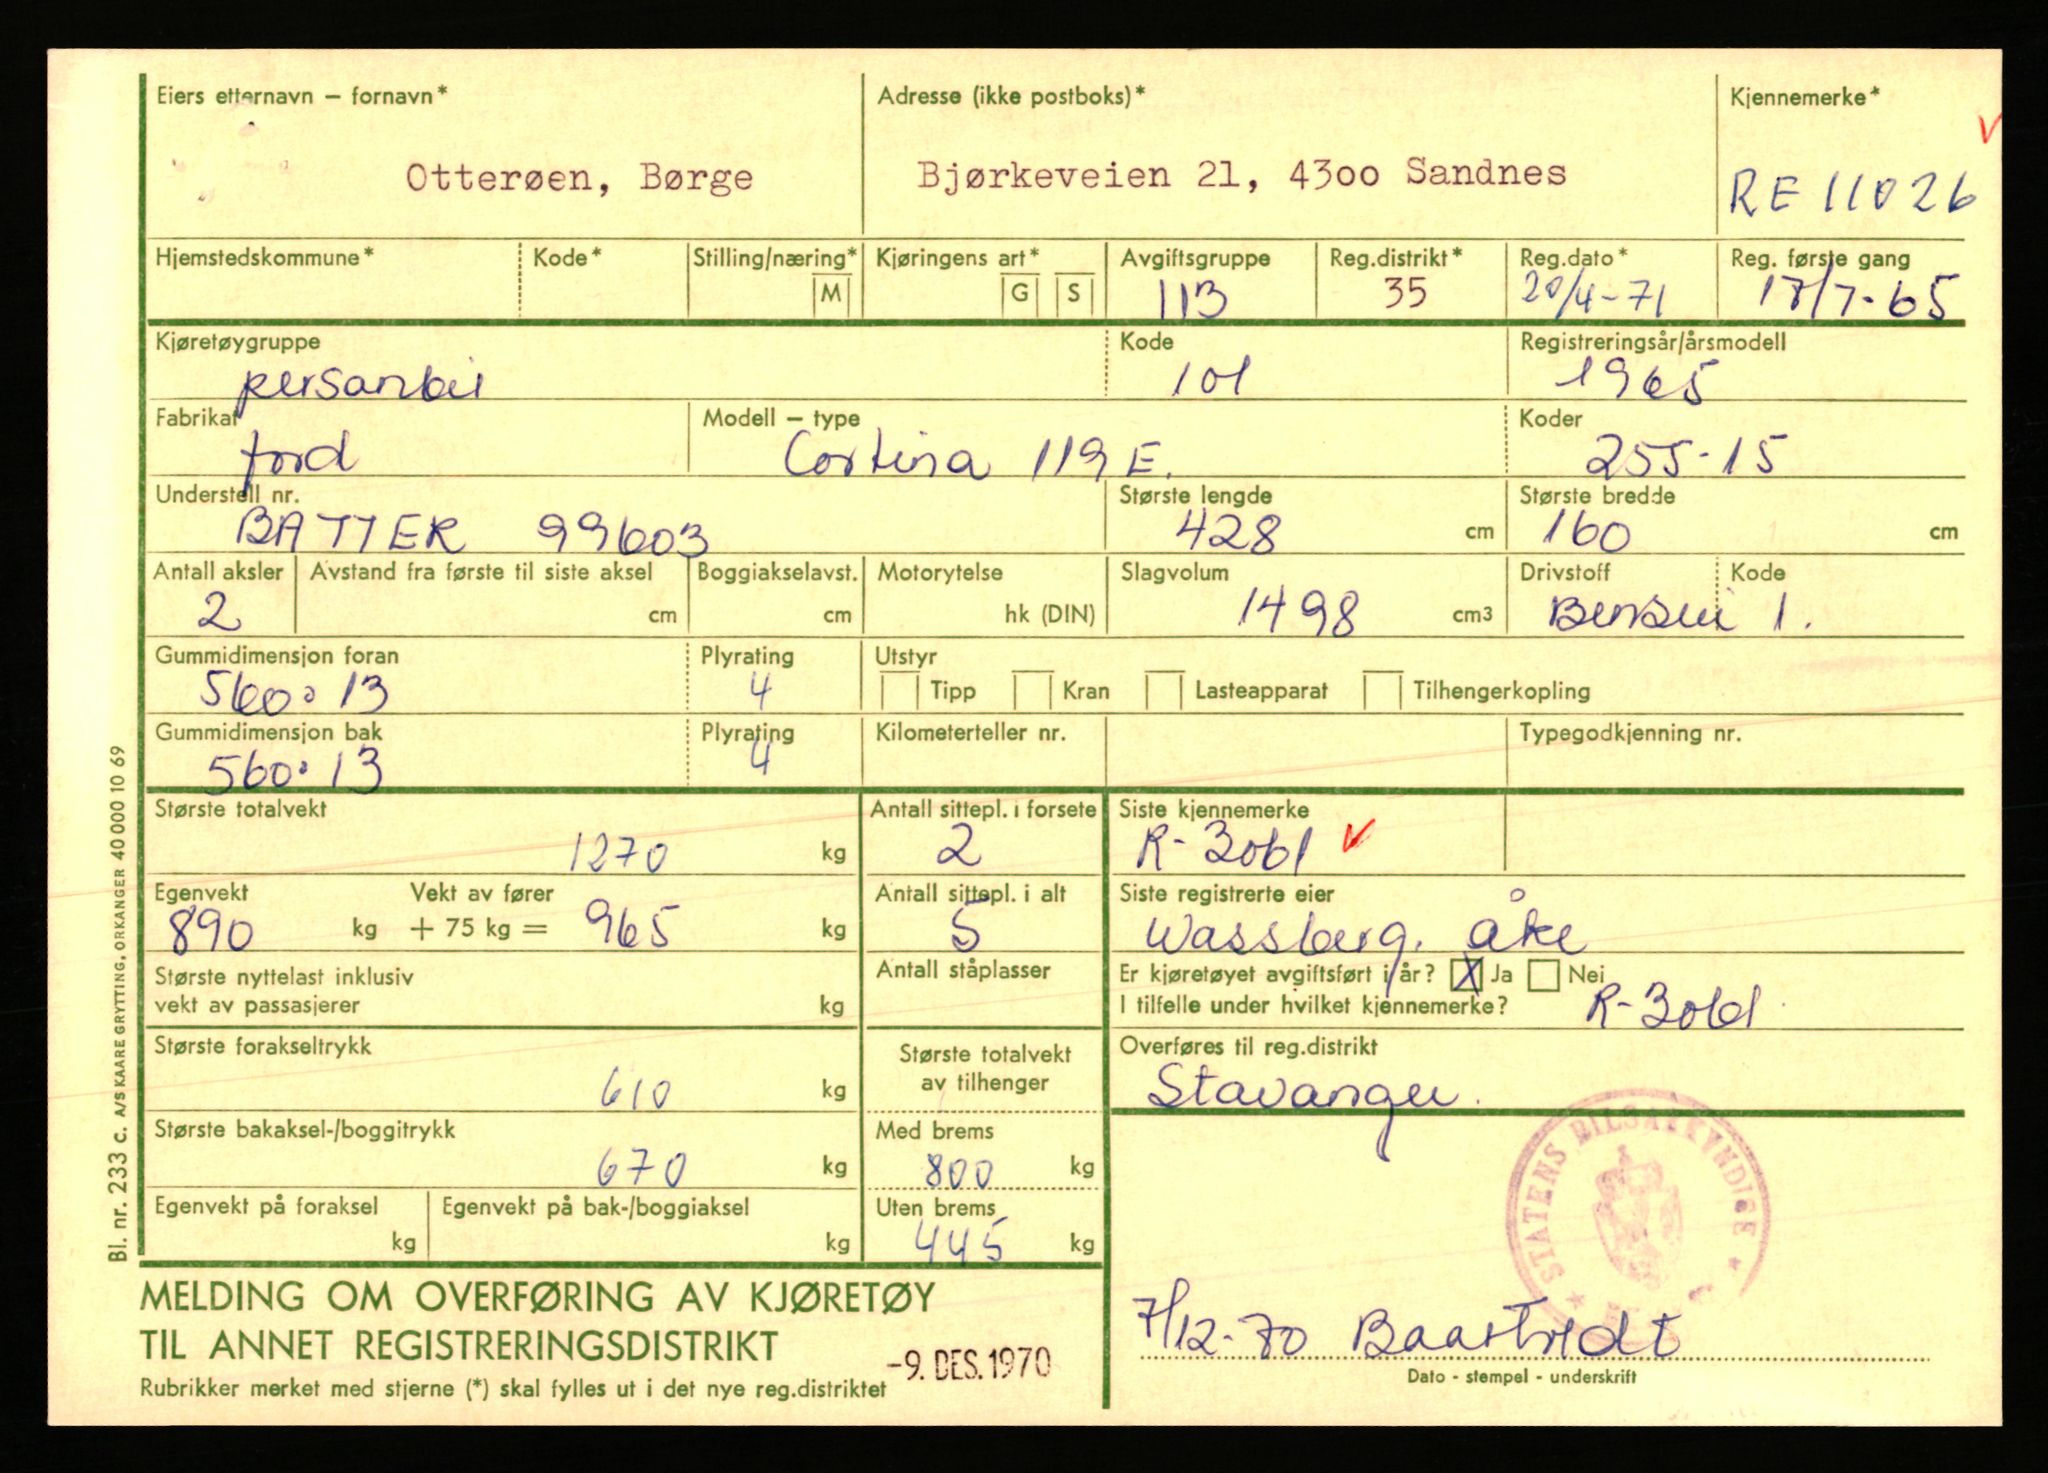 Eiers etternavn – fornavn*
Adresse (ikke postboks)*
Kjennemerke*
Otterøen, Børge
Bjørkeveien 21, 4300 Sandnes
RE 11026
Hjemstedskommune*
Kode*
Stilling/næring*
M
Kjøringens art*
G
S
Avgiftsgruppe
113
Reg.distrikt*
35
Reg.dato*
20/4-71
Reg. første gang
17/7-65
Kjøretøygruppe
personbil
Kode
101
Registreringsår/årsmodell
1965
Fabrikat
ford
Modell – type
Cortina 119 E.
Koder
255-15
Understell nr.
99603
Største lengde
428 cm
Største bredde
160 cm
Antall aksler
2
Avstand fra første til siste aksel
cm
Boggiakselavst.
cm
Motorytelse
hk (DIN)
Slagvolum
1498 cm3
Drivstoff
Bensin
Kode
1.
Gummidimensjon foran
560·13
Plyrating
4
Utstyr
Tipp
Kran
Lasteapparat
Tilhengerkopling
Gummidimensjon bak
560·13
Plyrating
4
Kilometerteller nr.
Typegodkjenning nr.
Største totalvekt
1270 kg
Antall sittepl. i forsete
2
Siste kjennemerke
R-3061
Egenvekt
890 kg
Vekt av fører
+ 75 kg = 965 kg
Antall sittepl. i alt
5
Siste registrerte eier
Wassberg, Åke
Største nyttelast inklusiv
vekt av passasjerer kg
Antall ståplasser
Er kjøretøyet avgiftsført i år? X Ja Nei
I tilfelle under hvilket kjennemerke? R-3061
Største forakseltrykk
610 kg
Største totalvekt
av tilhenger
Overføres til reg.distrikt
Stavanger.
Største bakaksel-/boggitrykk
670 kg
Med brems
800 kg
Egenvekt på foraksel
kg
Egenvekt på bak-/boggiaksel
kg
Uten brems
445 kg
STATENS BILSAKKYNDIGE
MELDING OM OVERFØRING AV KJØRETØY
TIL ANNET REGISTRERINGSDISTRIKT
-9. DES. 1970
Rubrikker merket med stjerne (*) skal fylles ut i det nye reg.distriktet
7/12-70 Baastvedt
Dato - stempel - underskrift
Bl. nr. 233 c. A/S KAARE GRYTTING, ORKANGER 40 000 10 69